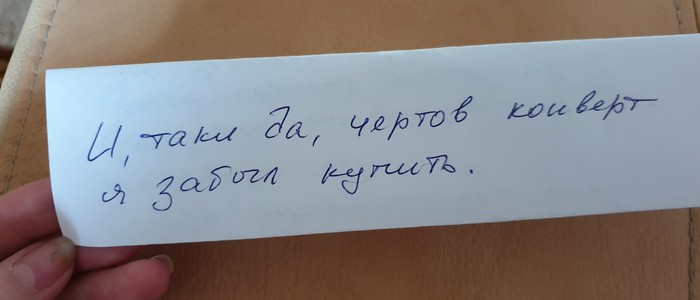 И, таки да, чертов конверт
я забыл купить.